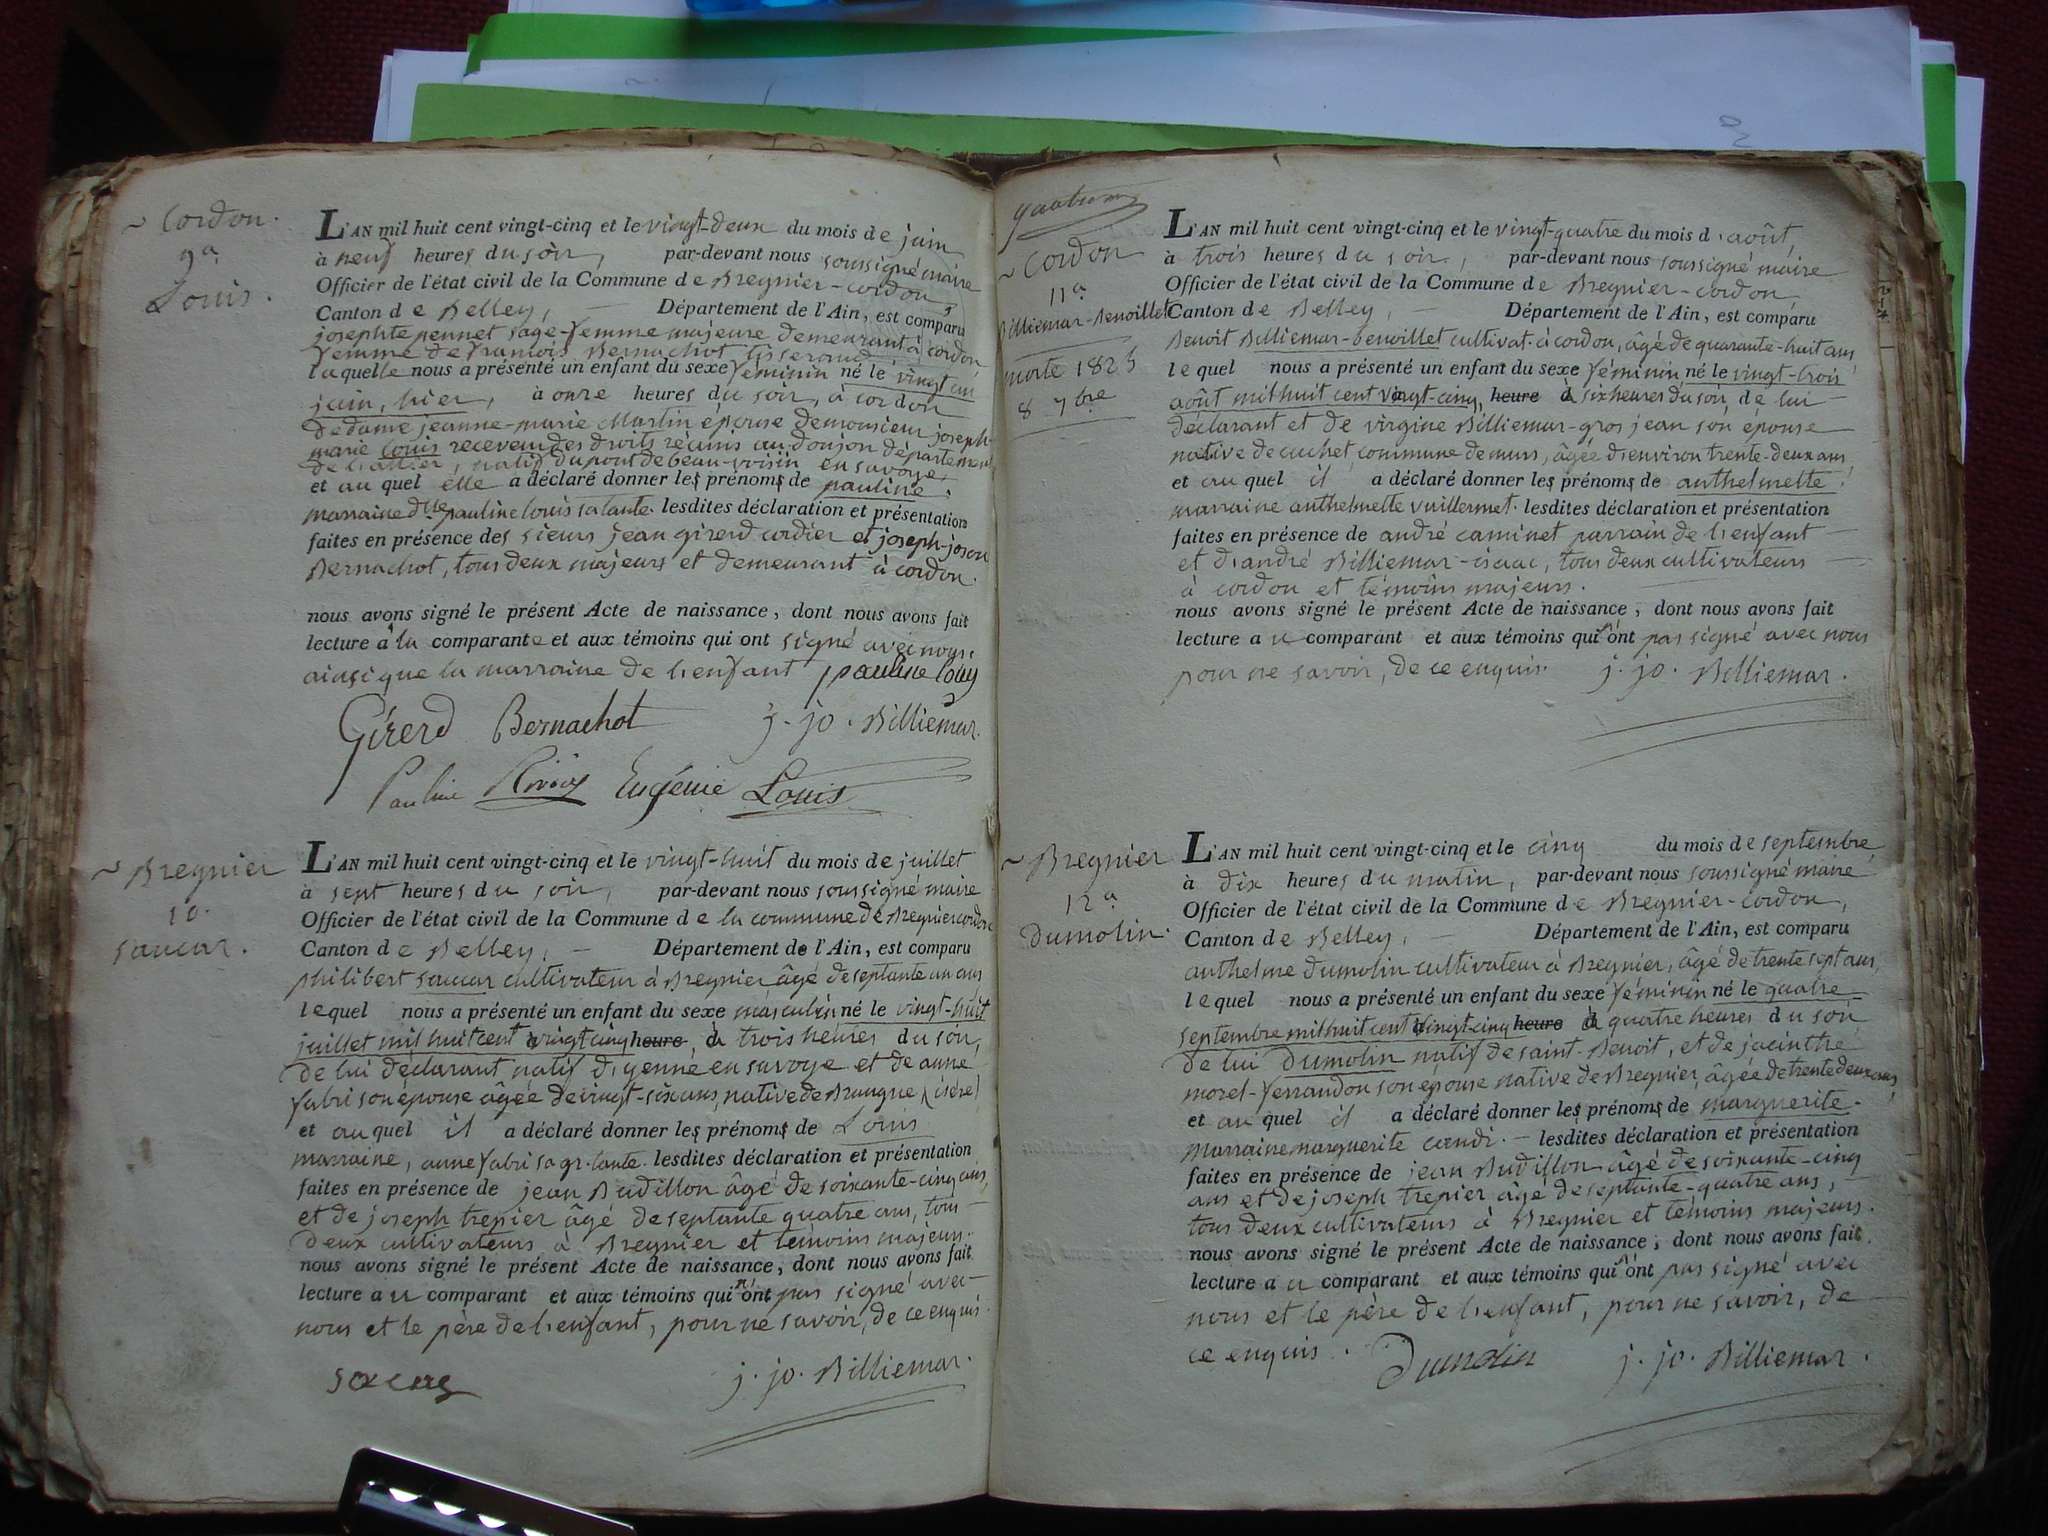 ~ Cordon.
9a
Louis.
L'AN mil huit cent vingt-cinq et le vingt-deux du mois de juin
à neuf heures du soir, par-devant nous soussigné maire
Officier de l'état civil de la Commune de Bregnier-cordon,
Canton de Belley, — Département de l'Ain, est comparu
josephte pennet sage-femme majeure demeurant à cordon,
femme de françois Bernachot tisserand
laquelle nous a présenté un enfant du sexe féminin né le vingt un
juin, hier, à onze heures du soir, à cordon
de dame jeanne-marie Martin épouse de monsieur joseph-
marie Louis receveur des droits réunis au donjon département
de l'allier, natif du pont de beau-voisin en savoye,
et au quel elle a déclaré donner les prénoms de pauline.
marraine dlle pauline louis sa tante. lesdites déclaration et présentation
faites en présence des sieurs jean girerd cordier et joseph-
Bernachot, tous deux majeurs et demeurant à cordon.
nous avons signé le présent Acte de naissance, dont nous avons fait
lecture à la comparante et aux témoins qui ont signé avec nous,
ainsi que la marraine de l'enfant pauline louis
Girerd Bernachot j. jo. Billiemar.
Pauline Eugénie Louis
~ Bregnier
10.
saucar.
L'AN mil huit cent vingt-cinq et le vingt-huit du mois de juillet
à sept heures du soir, par-devant nous soussigné maire
Officier de l'état civil de la Commune de la commune de Bregnier cordon
Canton de Belley, — Département de l'Ain, est comparu
philibert saucar cultivateur à Bregnier âgé de septante un ans
lequel nous a présenté un enfant du sexe masculin né le vingt-huit
juillet mil huit cent vingt cinq heure à trois heures du soir,
de lui déclarant natif d'yenne en savoye et de anne
fabri son épouse âgée de vingt-six ans, native de Brangue (isère)
et au quel il a déclaré donner les prénoms de Louis
marraine, anne fabri sa gr. tante. lesdites déclaration et présentation
faites en présence de jean Budillon âgé de soixante-cinq ans,
et de joseph trepier âgé de septante quatre ans, tous —
deux cultivateurs à Bregnier et témoins majeurs.
nous avons signé le présent Acte de naissance, dont nous avons fait
lecture au comparant et aux témoins qui n'ont pas signé avec —
nous et le père de l'enfant, pour ne savoir, de ce enquis.
j. jo. Billiemar.
~ Cordon
11a
Billiemar-Benoillet
morte 1825
8 7bre
L'AN mil huit cent vingt-cinq et le vingt-quatre du mois d'août,
à trois heures du soir, par-devant nous soussigné maire
Officier de l'état civil de la Commune de Bregnier-cordon,
Canton de Belley, — Département de l'Ain, est comparu
Benoit Billiemar-benoillet cultivat. à cordon, âgé de quarante-huit ans,
lequel nous a présenté un enfant du sexe féminin né le vingt-trois
août mil huit cent vingt-cinq, heure à six heures du soir, de lui —
déclarant et de virgine Billiemar-gros jean son épouse
native de cuchet, commune de murs, âgée d'environ trente-deux ans,
et au quel il a déclaré donner les prénoms de anthelmette.
marraine anthelmette vuillermet. lesdites déclaration et présentation
faites en présence de andré caminet parrain de l'enfant —
et d'andré Billiemar-isaac, tous deux cultivateurs —
à cordon et témoins majeurs.
nous avons signé le présent Acte de naissance, dont nous avons fait
lecture au comparant et aux témoins qui n'ont pas signé avec nous
pour ne savoir, de ce enquis. j. jo. Billiemar.
~ Bregnier
12a
Dumolin.
L'AN mil huit cent vingt-cinq et le cinq du mois de septembre
à dix heures du matin, par-devant nous soussigné maire
Officier de l'état civil de la Commune de Bregnier-cordon,
Canton de Belley, — Département de l'Ain, est comparu
anthelme Dumolin cultivateur à Bregnier, âgé de trente sept ans,
lequel nous a présenté un enfant du sexe féminin né le quatre —
septembre mil huit cent vingt-cinq heure à quatre heures du soir
de lui Dumolin natif de saint-Benoit, et de jacinthe
morel-ferrandon son épouse native de Bregnier, âgée de trente deux ans,
et au quel il a déclaré donner les prénoms de marguerite.
Marraine marguerite — lesdites déclaration et présentation
faites en présence de jean Budillon âgé de soixante-cinq
ans et de joseph trepier âgé de septante-quatre ans, —
tous deux cultivateurs à Bregnier et témoins majeurs.
nous avons signé le présent Acte de naissance, dont nous avons fait
lecture au comparant et aux témoins qui n'ont pas signé avec
nous et le père de l'enfant, pour ne savoir, de —
ce enquis. Dumolin j. jo. Billiemar.